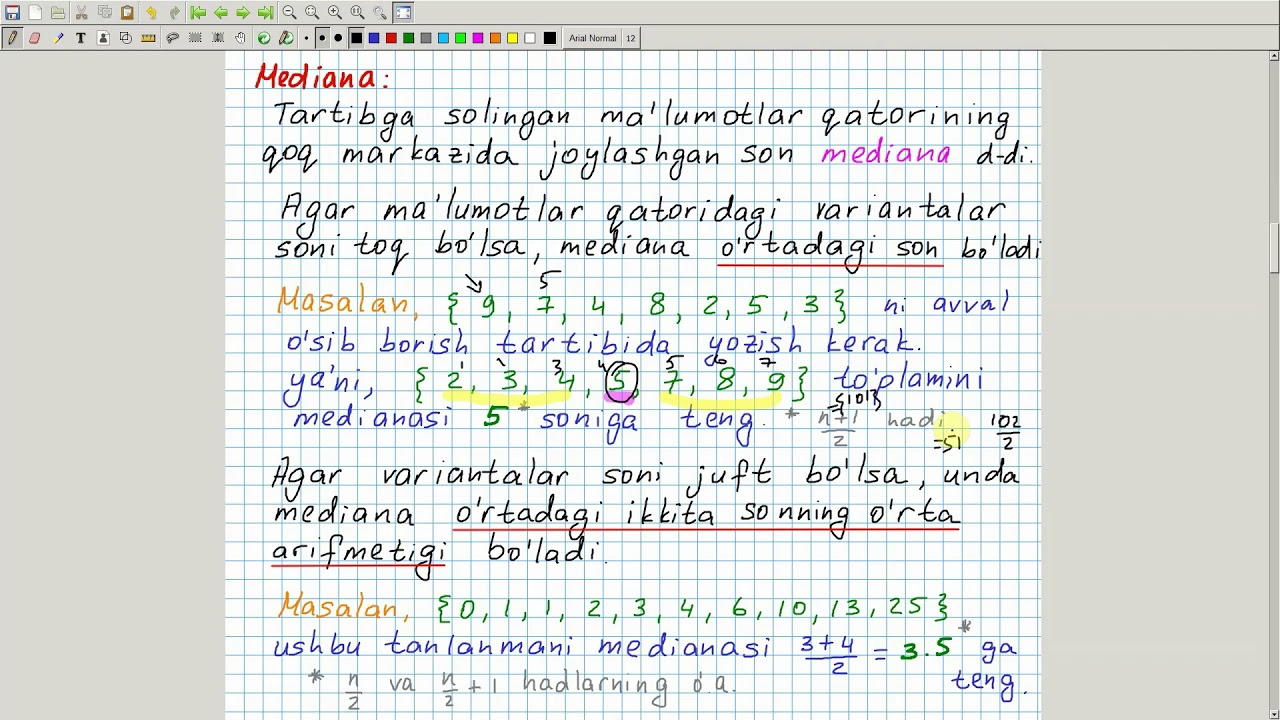 Arial Normal 12
Mediana:
Tartibga solingan ma'lumotlar qatorining
qoq markazida joylashgan son mediana d-di.
Agar ma'lumotlar qatoridagi variantalar
soni toq bo'lsa, mediana o'rtadagi son bo'ladi
5
Masalan, { 9, 7, 4, 8, 2, 5, 3 } ni avval
o'sib borish tartibida yozish kerak.
1 3 4 5 6 7
ya'ni, { 2, 3, 4, 5, 7, 8, 9 } to'plamini
={101}
medianasi 5* soniga teng. * n+1/2 hadi. 102/2
=51
Agar variantalar soni juft bo'lsa, unda
mediana o'rtadagi ikkita sonning o'rta
arifmetigi bo'ladi.
Masalan, { 0, 1, 1, 2, 3, 4, 6, 10, 13, 25 }
ushbu tanlanmani medianasi 3+4/2 = 3.5* ga
teng.
* n/2 va n/2 + 1 hadlarning o'.a.